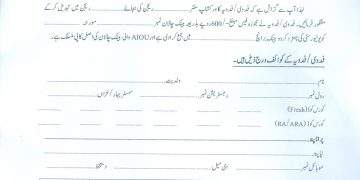 لہٰذا آپ سے گزارش ہے کہ فدوی/فدویہ کا ورکشاپ سنٹر ............ ریجن کی بجائے ............ ریجن میں تبدیل کرنے کی
منظور فرمائیں۔ فدوی/فدویہ نے مجوزہ فیس مبلغ -/600 روپے بذریعہ بینک چالان نمبر ............ مورخہ ............
کو یونیورسٹی کی نامزد کردہ بینک برانچ ............ میں جمع کروا دی ہے اور AIOU والی بینک چالان کی اصل کاپی منسلک ہے۔
فدوی/فدویہ کے کوائف درج ذیل ہیں۔
نام ............ ولدیت ............
رول نمبر ............ رجسٹریشن نمبر ............ سمسٹر بہار/خزاں ............
کورس کوڈ (Fresh)
کورس کوڈ (RA/ARA)
پرانا پتہ
نیا پتہ
موبائل نمبر ............ ای میل ............ دستخط ............